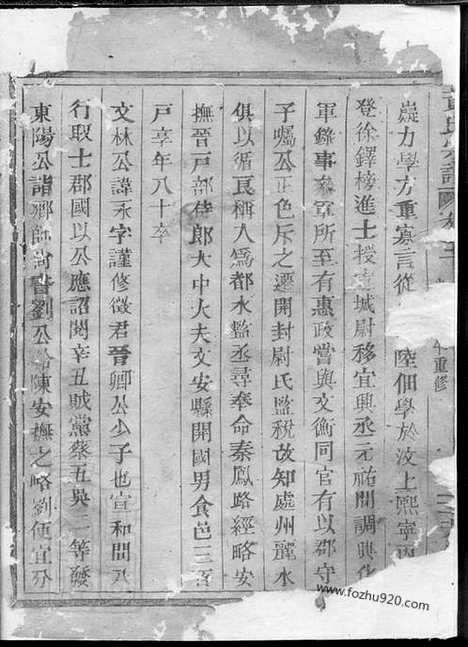 嶷力學方重寡言從 陸佃學於汶上熙寧丙
登徐鐸榜進士授宣城尉移宜興丞元祐間調興化
軍錄事叅軍所至有惠政嘗與文衡同官有以郡守
子囑公正色斥之遷開封尉氏監税故知處州麗水
俱以循良稱入爲都水監丞尋奉命秦鳳路經略安
撫晉戶部侍郎大中大夫文安縣開國男食邑三百
戶享年八十卒
文林公諱永字謹修徵君晉卿公少子也宣和間以
行取士郡國以公應詔閱辛丑賊黨蔡五吳二等發
東陽公詣鄉師尚書劉公 陳安撫之略劉便宜分
年重修
www.fozhu920.com